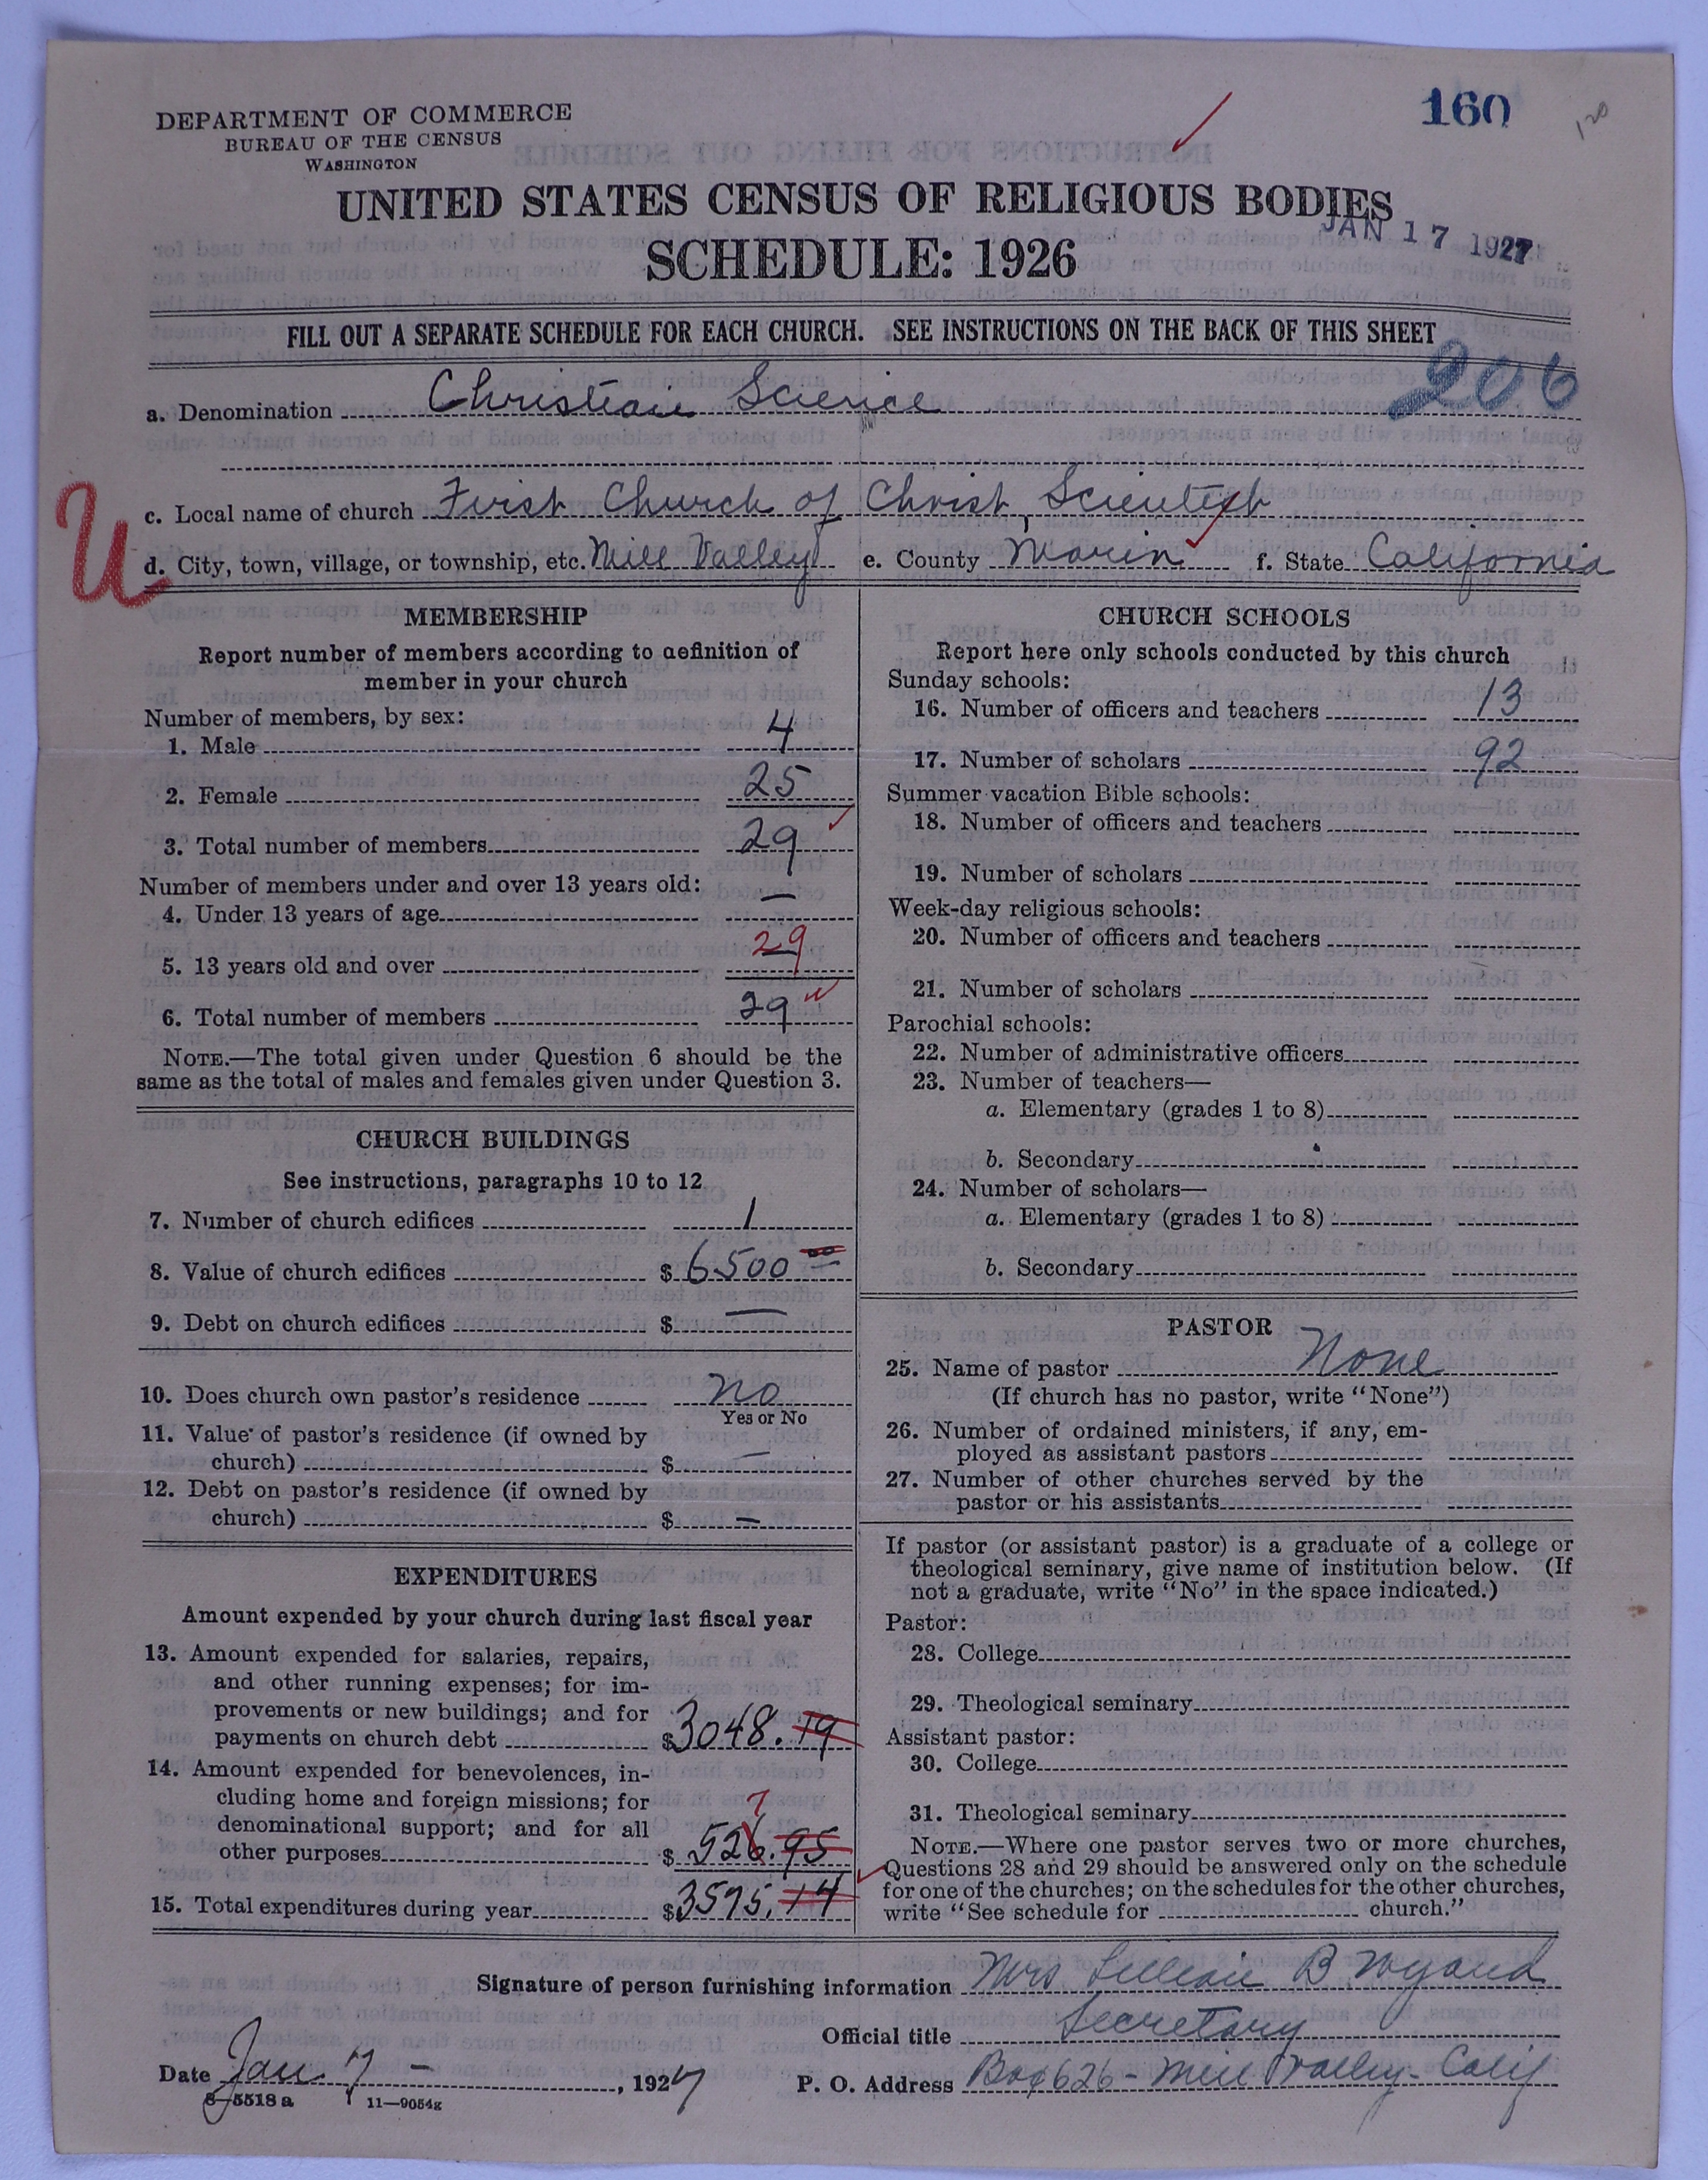 DEPARTMENT OF COMMERCE
BUREAU OF THE CENSUS
WASHINGTON
160
120
UNITED STATES CENSUS OF RELIGIOUS BODIES
JAN 17 1927
SCHEDULE: 1926
FILL OUT A SEPARATE SCHEDULE FOR EACH CHURCH. SEE INSTRUCTIONS ON THE BACK OF THIS SHEET
206
a. Denomination Christian Science
c. Local name of church First Church of Christ, Scientist
U
d. City, town, village, or township, etc. Mill Valley e. County Marin f. State California
MEMBERSHIP
Report number of members according to definition of
member in your church
Number of members, by sex:
1. Male 4
2. Female 25
3. Total number of members 29
Number of members under and over 13 years old:
4. Under 13 years of age —
5. 13 years old and over 29
6. Total number of members 29
NOTE.—The total given under Question 6 should be the
same as the total of males and females given under Question 3.
CHURCH BUILDINGS
See instructions, paragraphs 10 to 12
7. Number of church edifices 1
8. Value of church edifices $ 6500 00
9. Debt on church edifices $ —
10. Does church own pastor's residence no
Yes or No
11. Value of pastor's residence (if owned by
church) $ —
12. Debt on pastor's residence (if owned by
church) $ —
EXPENDITURES
Amount expended by your church during last fiscal year
13. Amount expended for salaries, repairs,
and other running expenses; for im-
provements or new buildings; and for
payments on church debt $ 3048.19
14. Amount expended for benevolences, in-
cluding home and foreign missions; for
7
denominational support; and for all
other purposes $ 526.95
15. Total expenditures during year $ 3575.14
CHURCH SCHOOLS
Report here only schools conducted by this church
Sunday schools:
16. Number of officers and teachers 13
17. Number of scholars 92
Summer vacation Bible schools:
18. Number of officers and teachers
19. Number of scholars
Week-day religious schools:
20. Number of officers and teachers
21. Number of scholars
Parochial schools:
22. Number of administrative officers
23. Number of teachers—
a. Elementary (grades 1 to 8)
b. Secondary
24. Number of scholars—
a. Elementary (grades 1 to 8)
b. Secondary
PASTOR
25. Name of pastor None
(If church has no pastor, write "None")
26. Number of ordained ministers, if any, em-
ployed as assistant pastors
27. Number of other churches served by the
pastor or his assistants
If pastor (or assistant pastor) is a graduate of a college or
theological seminary, give name of institution below. (If
not a graduate, write "No" in the space indicated.)
Pastor:
28. College
29. Theological seminary
Assistant pastor:
30. College
31. Theological seminary
NOTE.—Where one pastor serves two or more churches,
Questions 28 and 29 should be answered only on the schedule
for one of the churches; on the schedules for the other churches,
write "See schedule for church."
Signature of person furnishing information Mrs Lillian B Wyand
Official title Secretary
Date Jan 7 – , 1927 P. O. Address Box 626 - Mill Valley - Calif
8—5518a 11—9054g